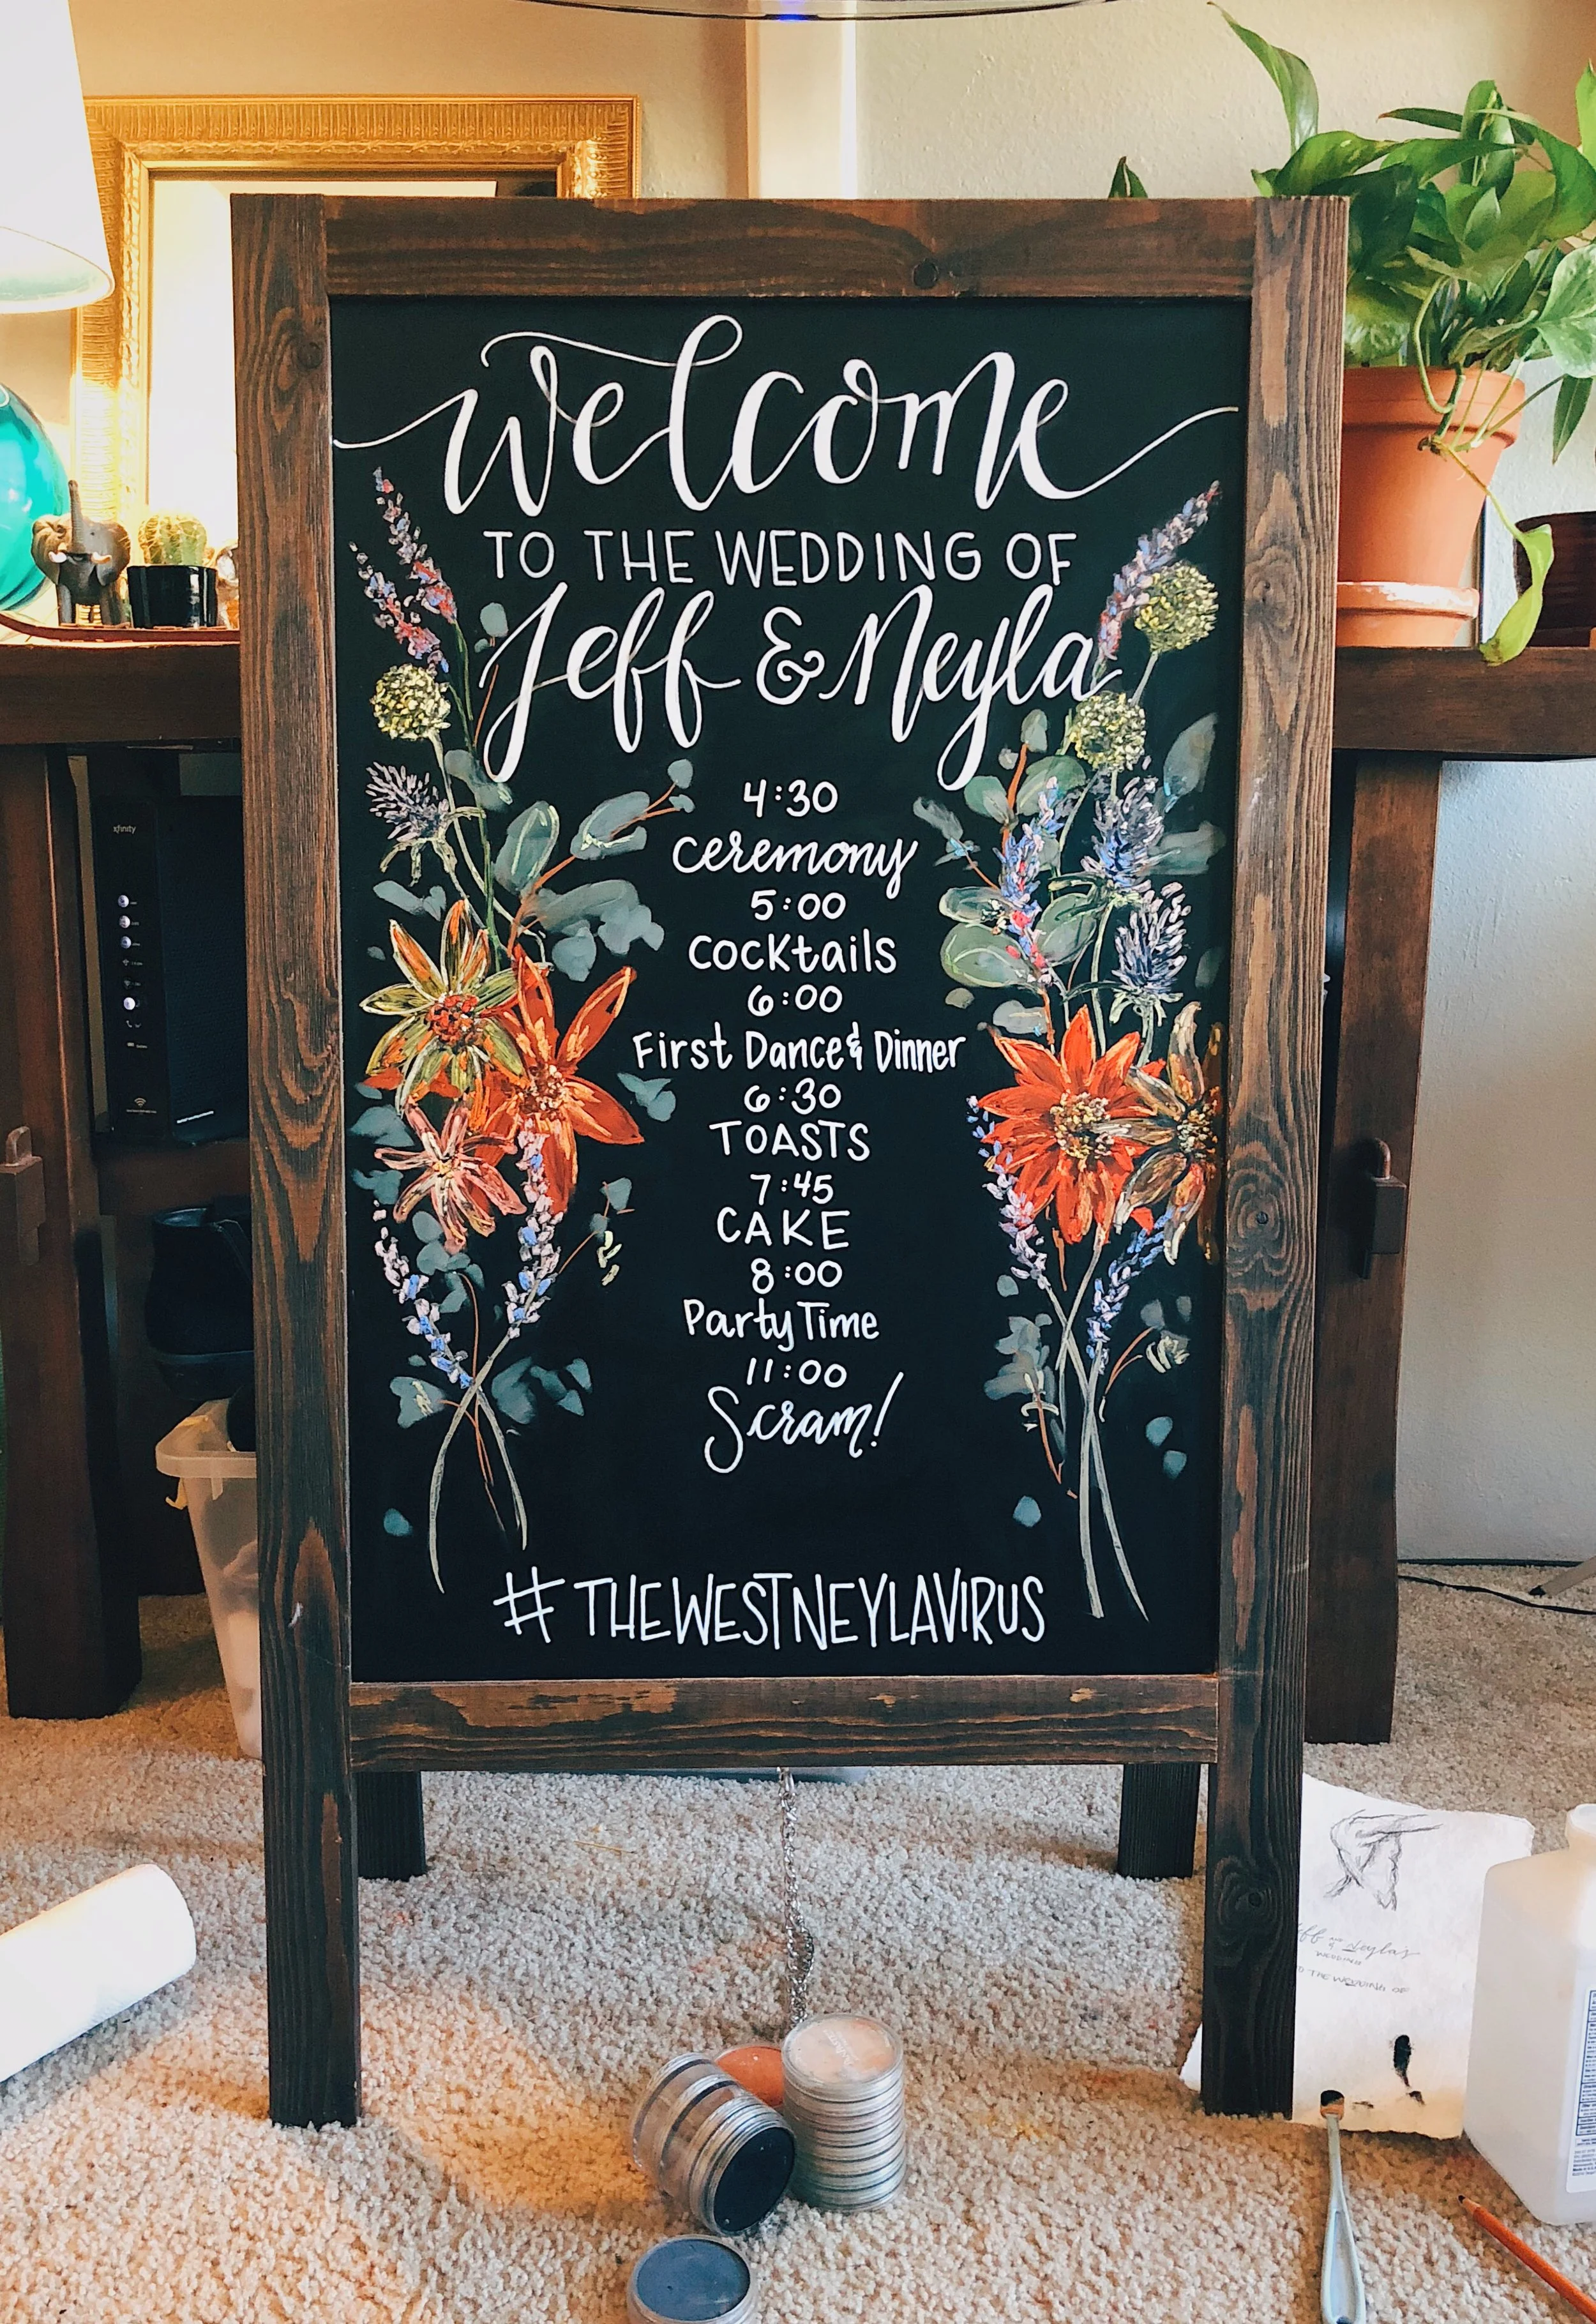 welcome
TO THE WEDDING OF
Jeff & Neyla
4:30
ceremony
5:00
cocktails
6:00
First Dance & Dinner
6:30
TOASTS
7:45
CAKE
8:00
Party Time
11:00
Scram!
#THEWESTNEYLAVIRUS
xfinity
WEDDING
TO THE WEDDING OF